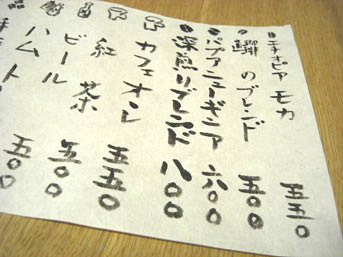 エチオピア モカ 五五〇
のブレンド 五〇〇
パプアニューギニア 六〇〇
深煎りブレンド 八〇〇
カフェオレ 五五〇
紅茶 五〇〇
ビール 五〇〇
ハムト